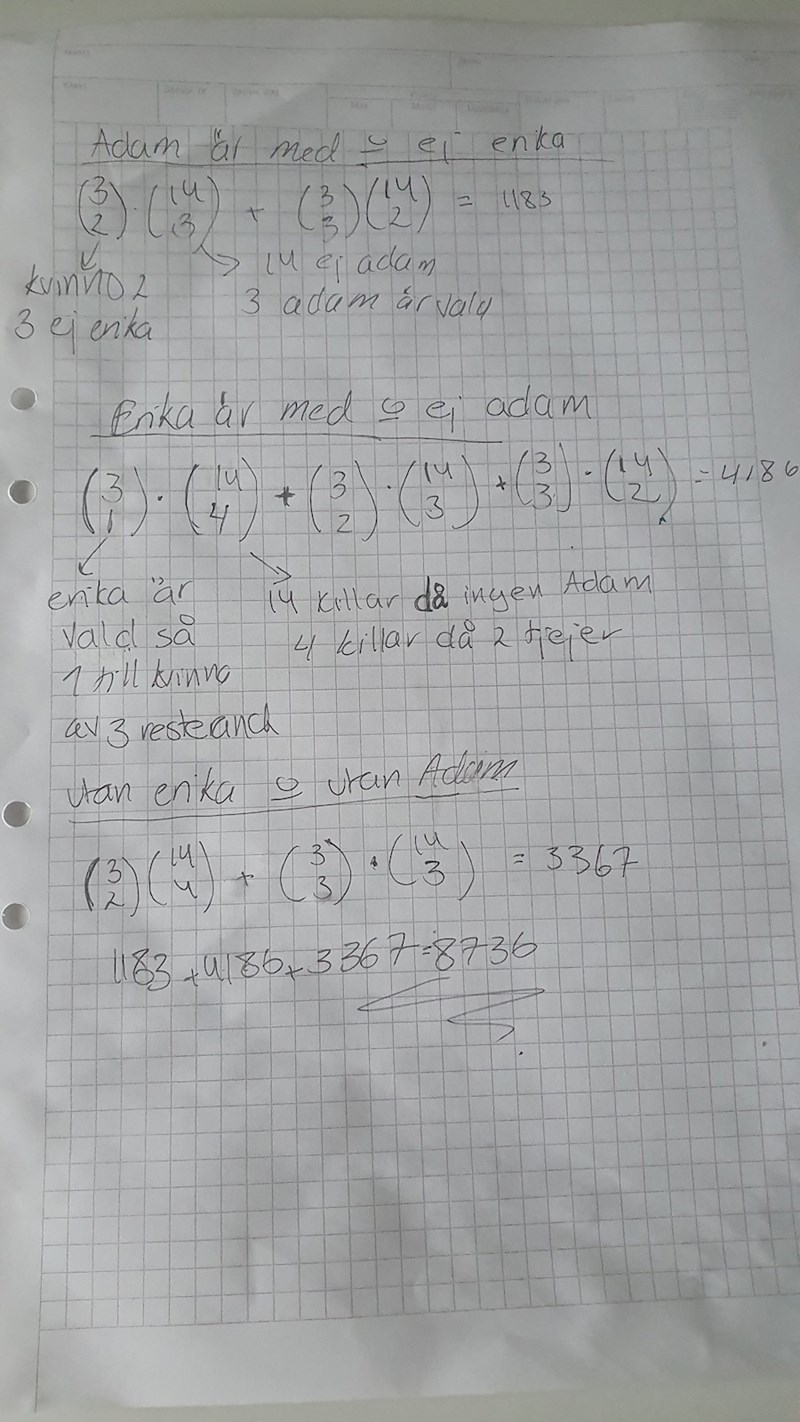 Adam är med & ej erika
(3 2) · (14 3) + (3 3) (14 2) = 1183
kvinno 2
3 ej erika
14 ej adam
3 adam är vald
Erika är med & ej adam
(3 1) · (14 4) + (3 2) · (14 3) + (3 3) · (14 2) = 4186
erika är
vald så
1 till kvinno
av 3 resteand
14 killar då ingen Adam
4 killar då 2 tjejer
utan erika & utan Adam
(3 2) (14 4) + (3 3) · (14 3) = 3367
1183 + 4186 + 3367 = 8736